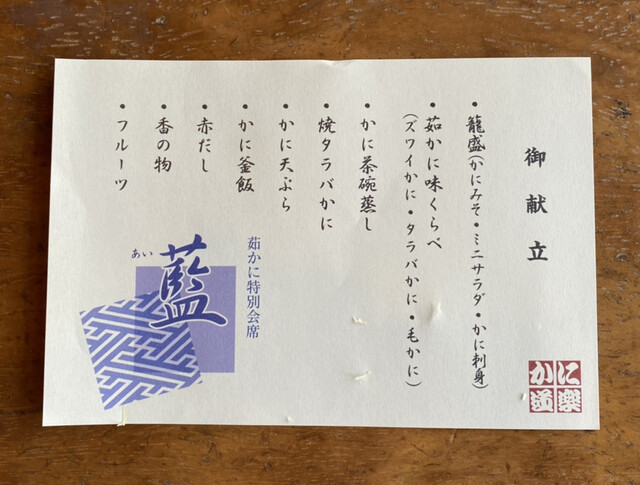 御献立
・籠盛(かにみそ・ミニサラダ・かに刺身)
・茹かに味くらべ
(ズワイかに・タラバかに・毛かに)
・かに茶碗蒸し
・焼タラバかに
・かに天ぷら
・かに釜飯
・赤だし
・香の物
・フルーツ
茹かに特別会席
藍
あい
かに
道樂